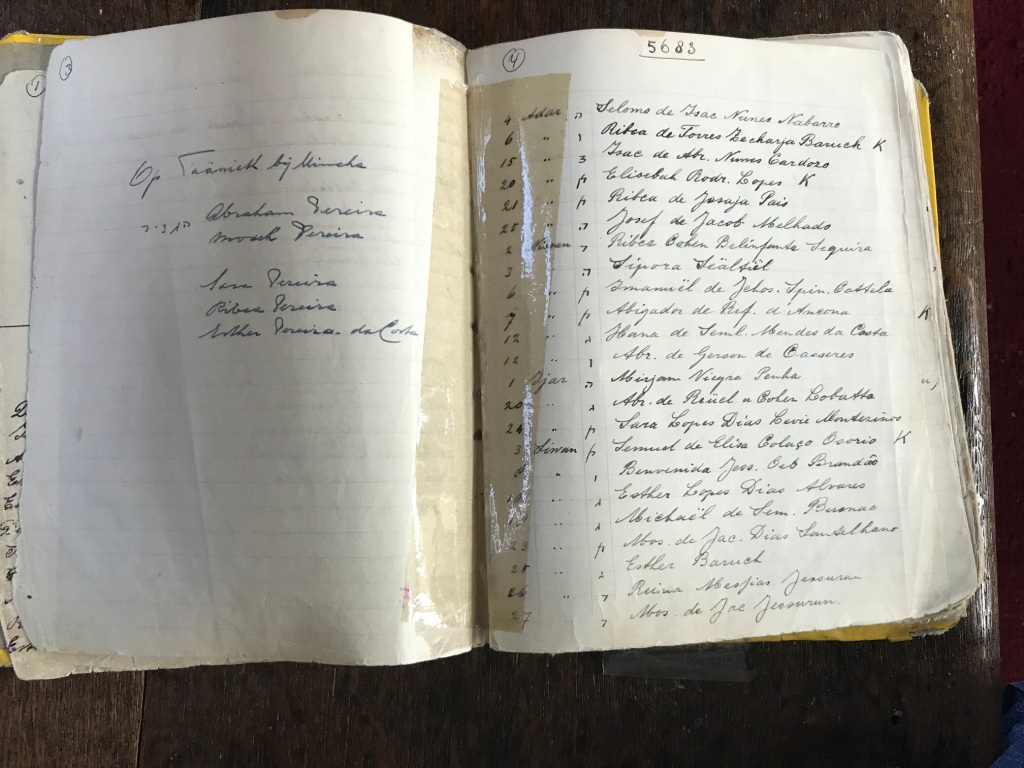 3
Op Taänieth bij Mincha
Abraham Pereira
Mosch Pereira
Sara Pereira
Ribca Pereira
Esther Pereira-da Costa
4
5683
4 Adar ה Selomo de Isac Nunes Nabarro
6 " ו Ribca de Torres Zecharja Baruch K
15 " Isac de Abr. Nunes Cardozo
20 " Elisebah Rodr. Lopes K
21 " Ribca de Jesaja Pais
25 " ה Josef de Jacob Melhado
2 Nissan ד Ribca Cohen Belinfante Sequira
3 " ה Sipora Sealtiël
6 " Imanuël de Jehos. Spin. Cattela
7 " Abigador de Ref. d'Ancona K
12 " Hana de Seml. Mendes da Costa
12 " ו Abr. de Gerson de Casseres
1 Ijar ה Mirjam Viegra Penha
20 " Abr. de Reuel a Cohen Lobatto
24 " Sara Lopes Dias Levie Montezinos
3 Siwan Semuel de Elisa Colaço Osorio K
" ו Benvenida Jess. Oeb Brandão
Esther Lopes Dias Alvares
" Michaël de Sem. Busnac
23 " Mos. de Jac. Dias Santilhano
25 " Esther Baruch
26 " ד Reina Messias Jessurun
27 ד Mos. de Jac Jessurun.